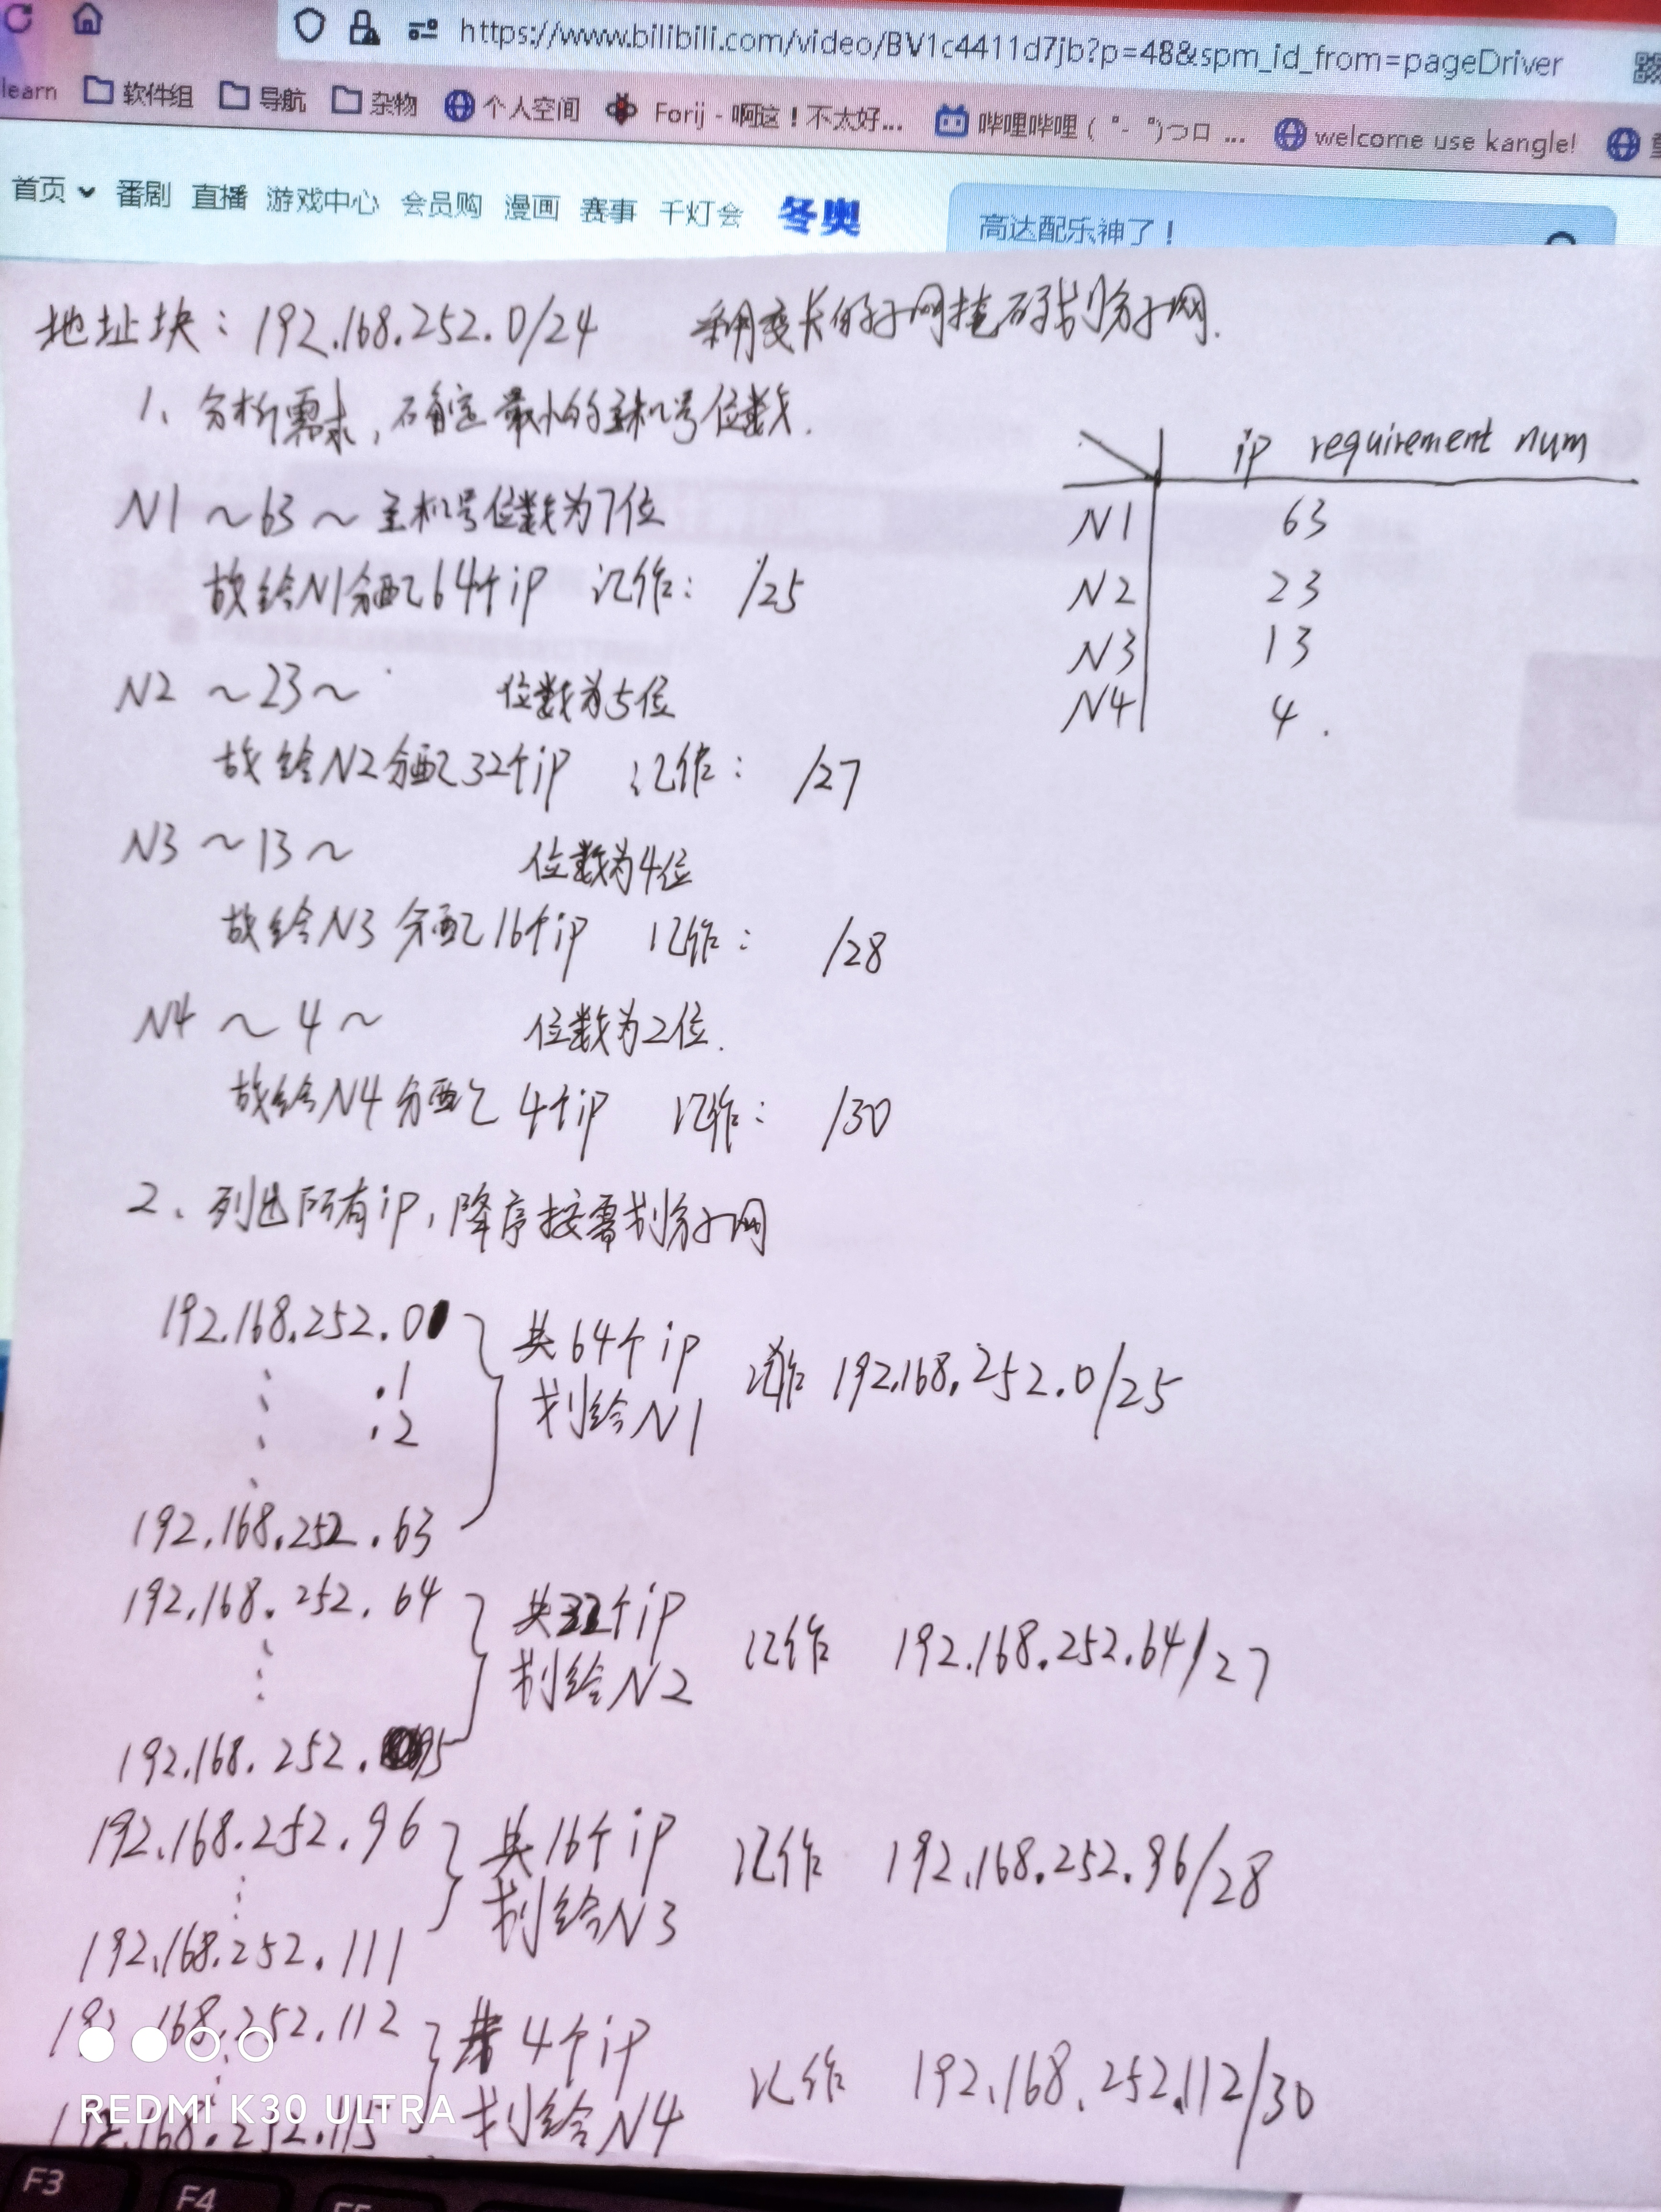 https://www.bilibili.com/video/BV1c4411d7jb?p=48&spm_id_from=pageDriver
learn 软件组 导航 杂物 个人空间 Forij - 啊这！不太好... 哔哩哔哩 (゜-゜)つロ ... welcome use kangle!
首页 番剧 直播 游戏中心 会员购 漫画 赛事 千灯会 冬奥 高达配乐神了！
地址块：192.168.252.0/24 采用变长的子网掩码划分子网.
1、分析需求，确定最小的主机号位数.
ip requirement num
N1 63
N2 23
N3 13
N4 4.
N1 ～63～ 主机号位数为7位
故给N1分配64个ip 记作： /25
N2 ～23～ 位数为5位
故给N2分配32个ip 记作： /27
N3 ～13～ 位数为4位
故给N3分配16个ip 记作： /28
N4 ～4～ 位数为2位.
故给N4分配4个ip 记作： /30
2、列出所有ip，降序按需划分子网
192.168.252.0 共64个ip
.1 划给N1 记作 192.168.252.0/25
.2
192.168.252.63
192.168.252.64 共32个ip
划给N2 记作 192.168.252.64/27
192.168.252.95
192.168.252.96 共16个ip 记作 192.168.252.96/28
划给N3
192.168.252.111
192.168.252.112 共4个ip
记作 192.168.252.112/30
192.168.252.115 划给N4
REDMI K30 ULTRA
F3 F4 F5